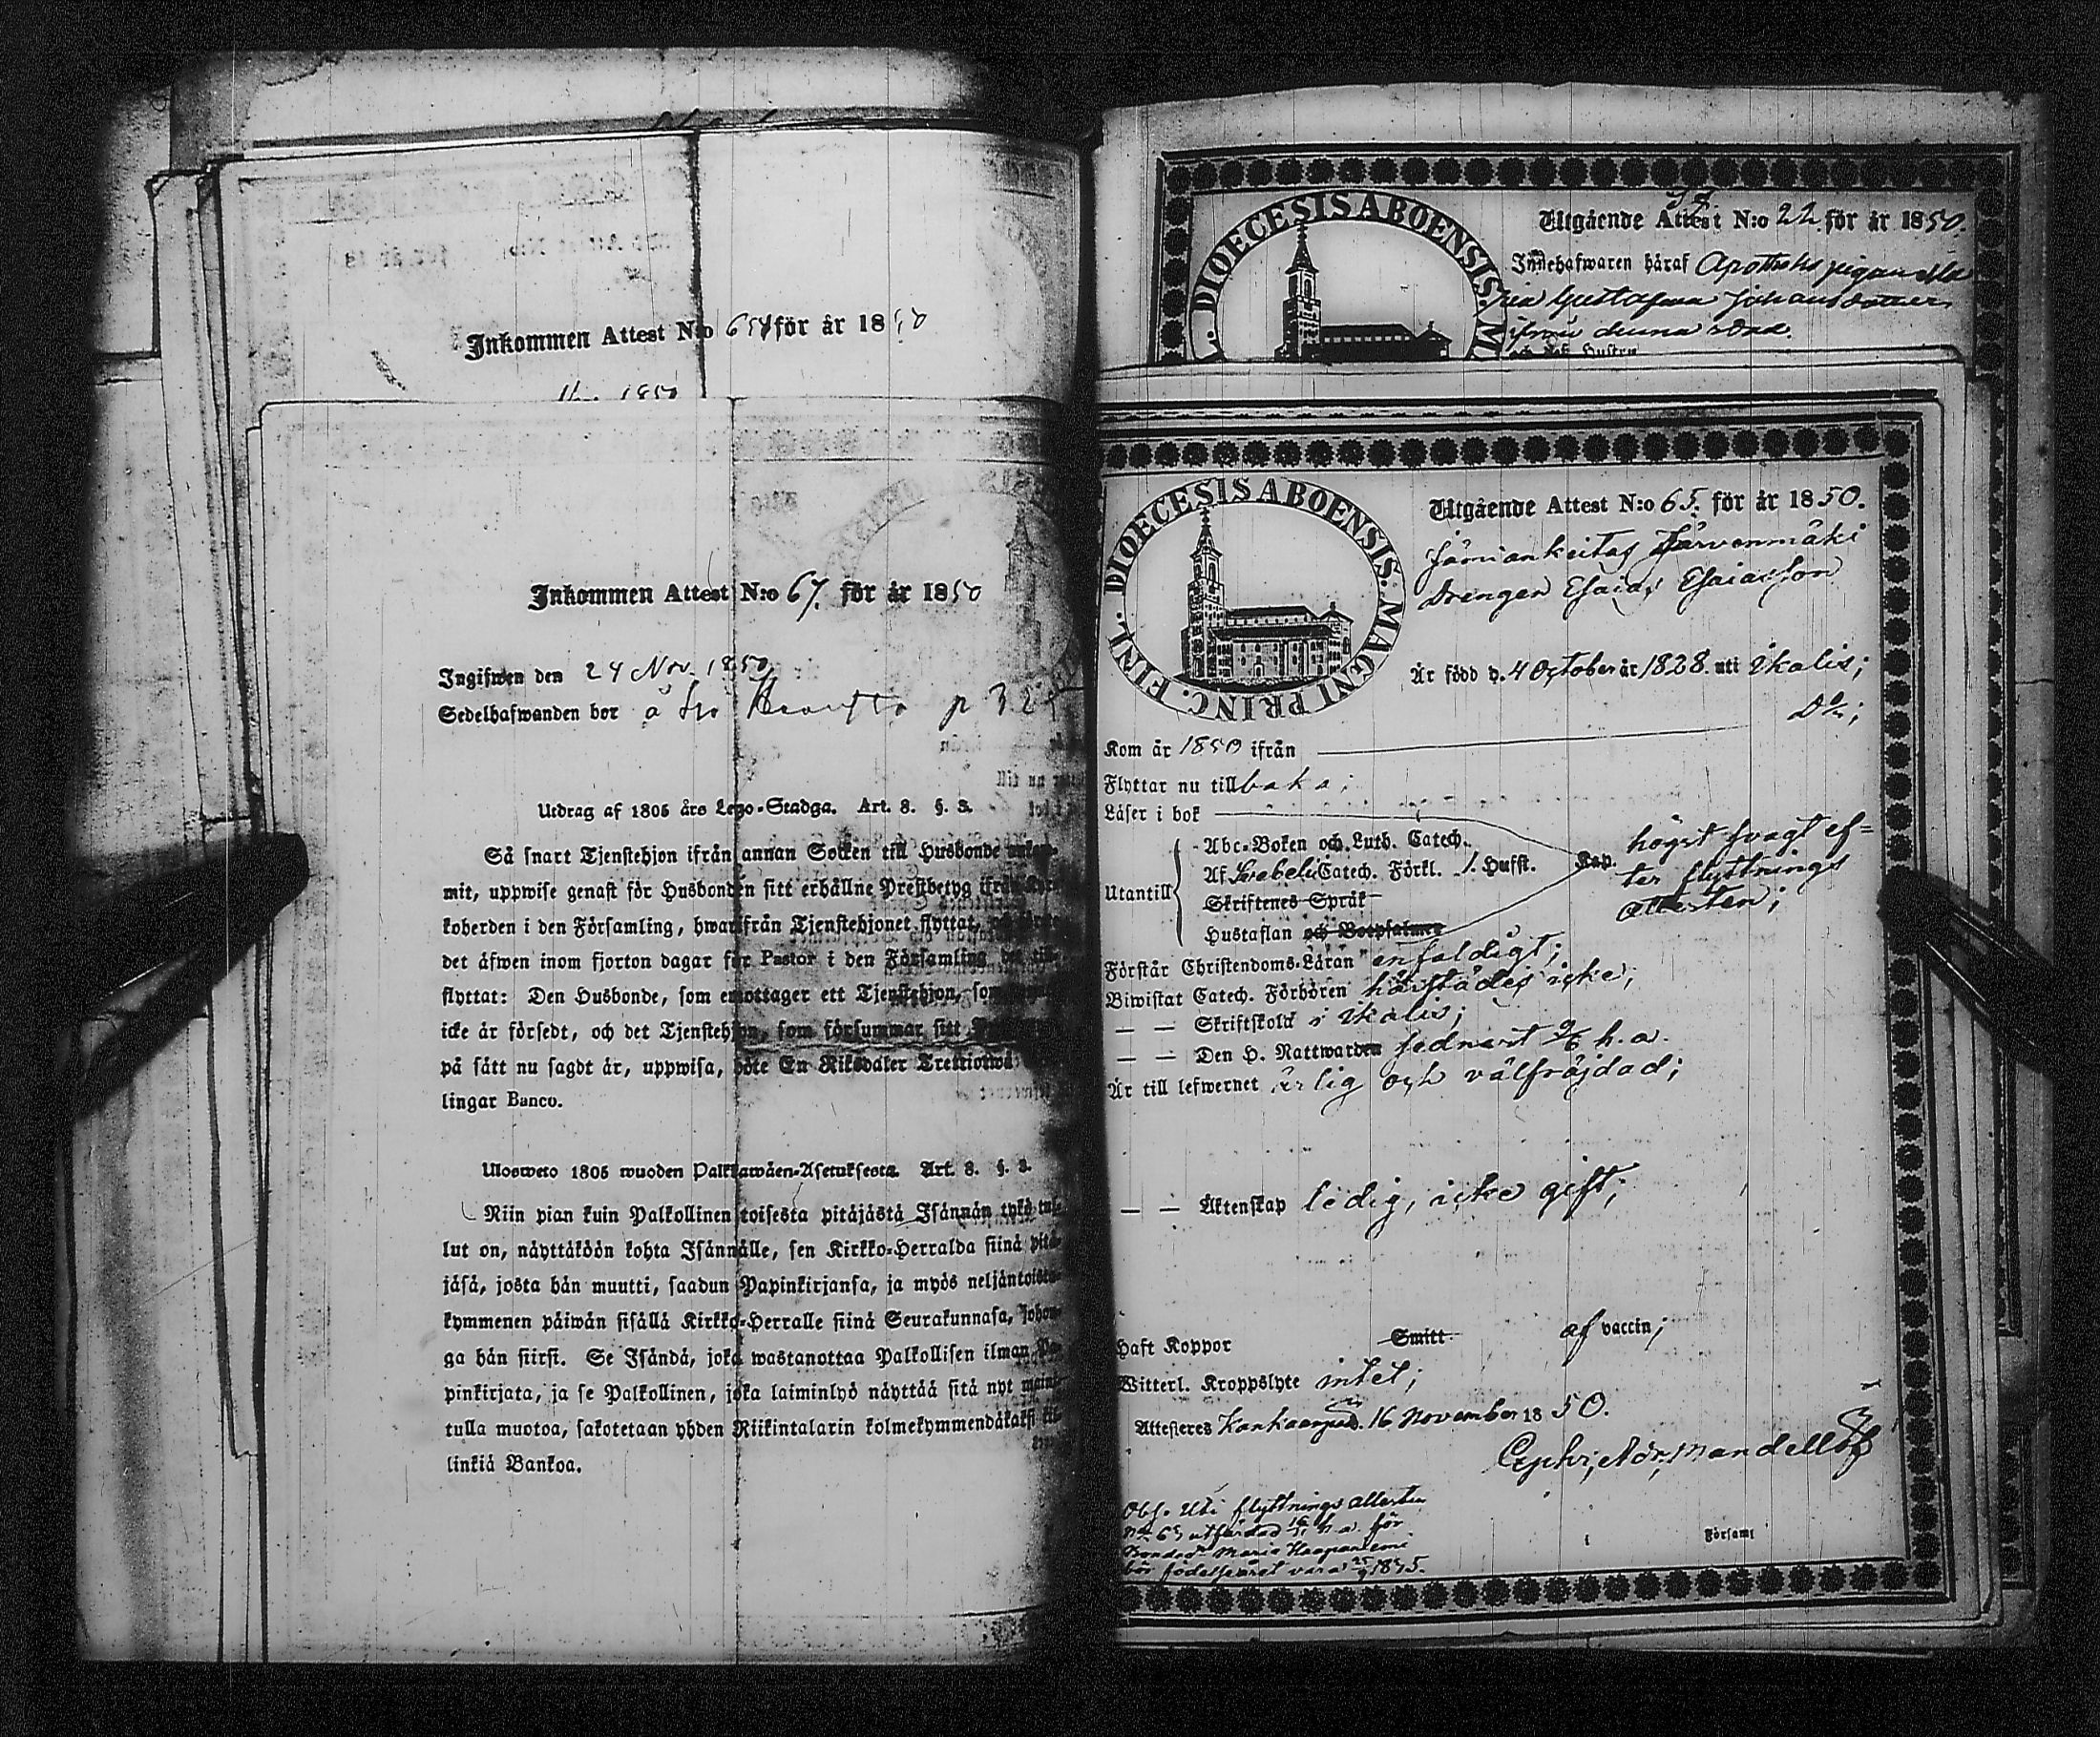 Inkommen Attest N:o 65 för år 1850
1850
Inkommen Attest N:o 67. för år 1850
Ingifwen den 24 Nov. 1850
Sedelhafwanden bor å p 32
Utdrag af 1805 års Lego-Stadga. Art. 8. §. 3.
Så snart Tjenstehjon ifrån annan Socken till Husbonde
mit, uppwise genast för Husbonden sitt erhållne Prestbetyg ifrån
koherden i den Församling, hwarifrån Tjenstehjonet flyttat,
det äfwen inom fjorton dagar för Pastor i den Församling
flyttat: Den Husbonde, som emottager ett Tjenstehjon, som
icke är försedt, och det Tjenstehjon, som försummar sitt
på sätt nu sagdt är, uppwisa, böte En Riksdaler Trettiotwå
lingar Banco.
Ulosweto 1805 wuoden Palkkawäen-Asetuksesta. Art. 8. §. 3.
Niin pian kuin Palkollinen toisesta pitäjästä Isännän tykö tul-
lut on, näyttäköön kohta Isännälle, sen Kirkko-Herralda siinä pitä-
jäsä, josta hän muutti, saadun Papinkirjansa, ja myös neljäntoista-
kymmenen päiwän sisällä Kirkko-Herralle siinä Seurakunnasa, johon-
ga hän siirsi. Se Isändä, joka wastanottaa Palkollisen ilman Pa-
pinkirjata, ja se Palkollinen, joka laiminlyö näyttää sitä nyt maini-
tulla muotoa, sakotetaan yhden Riikintalarin kolmekymmendäkaksi kil-
linkiä Bankoa.
DIOECESIS ABOENSIS. M
Utgående Attest N:o 22 för år 1850.
Innehafwaren häraf Apotheks pigan
Gustafwa Johansdotter
ifrån denna stad.
och dess Hustru
DIOECESIS ABOENSIS. MAGNI PRINC. FINL.
Utgående Attest N:o 65. för år 1850.
Jämiankeitas Järvenmäki
Drengen Esaias Esaiasson
Är född d. 4 October år 1828. uti Ikalis;
Kom år 1850 ifrån D:o;
Flyttar nu tillbaka;
Läser i bok
Abc-Boken och Luth. Catech.
Af Svebelii Catech. Förkl. 1. Hufst. Kap. högst svagt ef=
Utantill Skriftenes Språk ter flyttnings
Hustaflan och Botpsalmer attesten;
Förstår Christendoms-Läran enfaldigt;
Biwistat Catech. Förhören härstädes icke;
— — Skriftskola i Ikalis;
— — Den H. Nattwarden sednast h. a.
Är till lefwernet ärlig och välfräjdad;
— — Äktenskap ledig, icke gift;
Haft Koppor Smitt af vaccin;
Witterl. Kroppslyte intet;
Attesteras Kankaanpää d. 16 November 1850.
Mandellöf
Obs. Uti flyttnings attesten
No 65 utfärdad h. a. för
Maria Haapaniemi
bör födelseåret vara
Församl